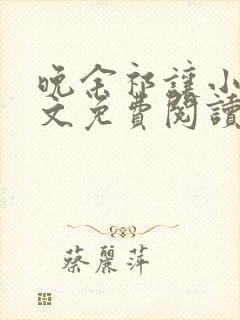 晚余祁讓小
文免費閱讀
蔡麗萍